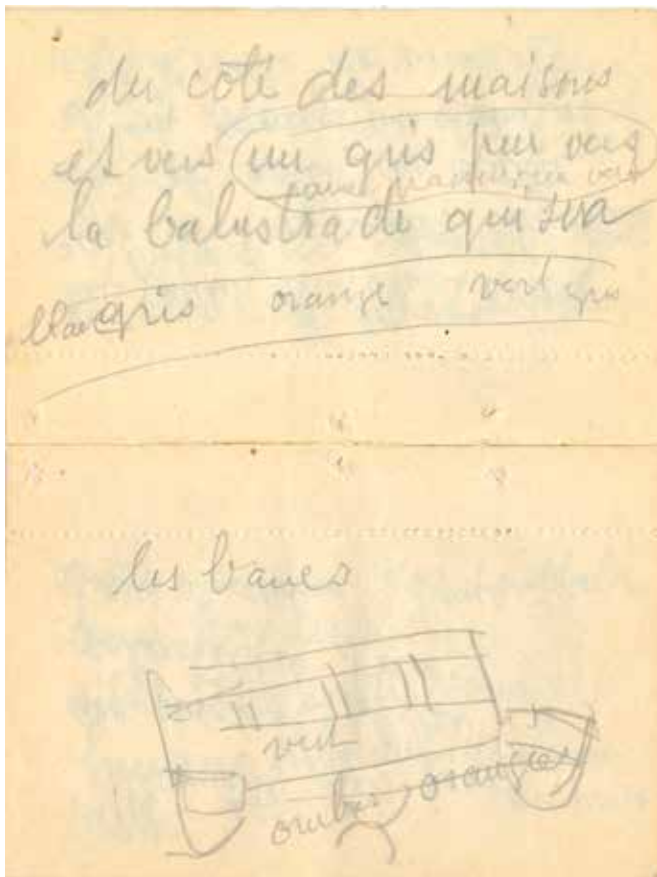 du coté des maisons
et vers un gris peu vers
la balustrade qui sera
gris orange vert gris
les bancs
vert
ombres orangées